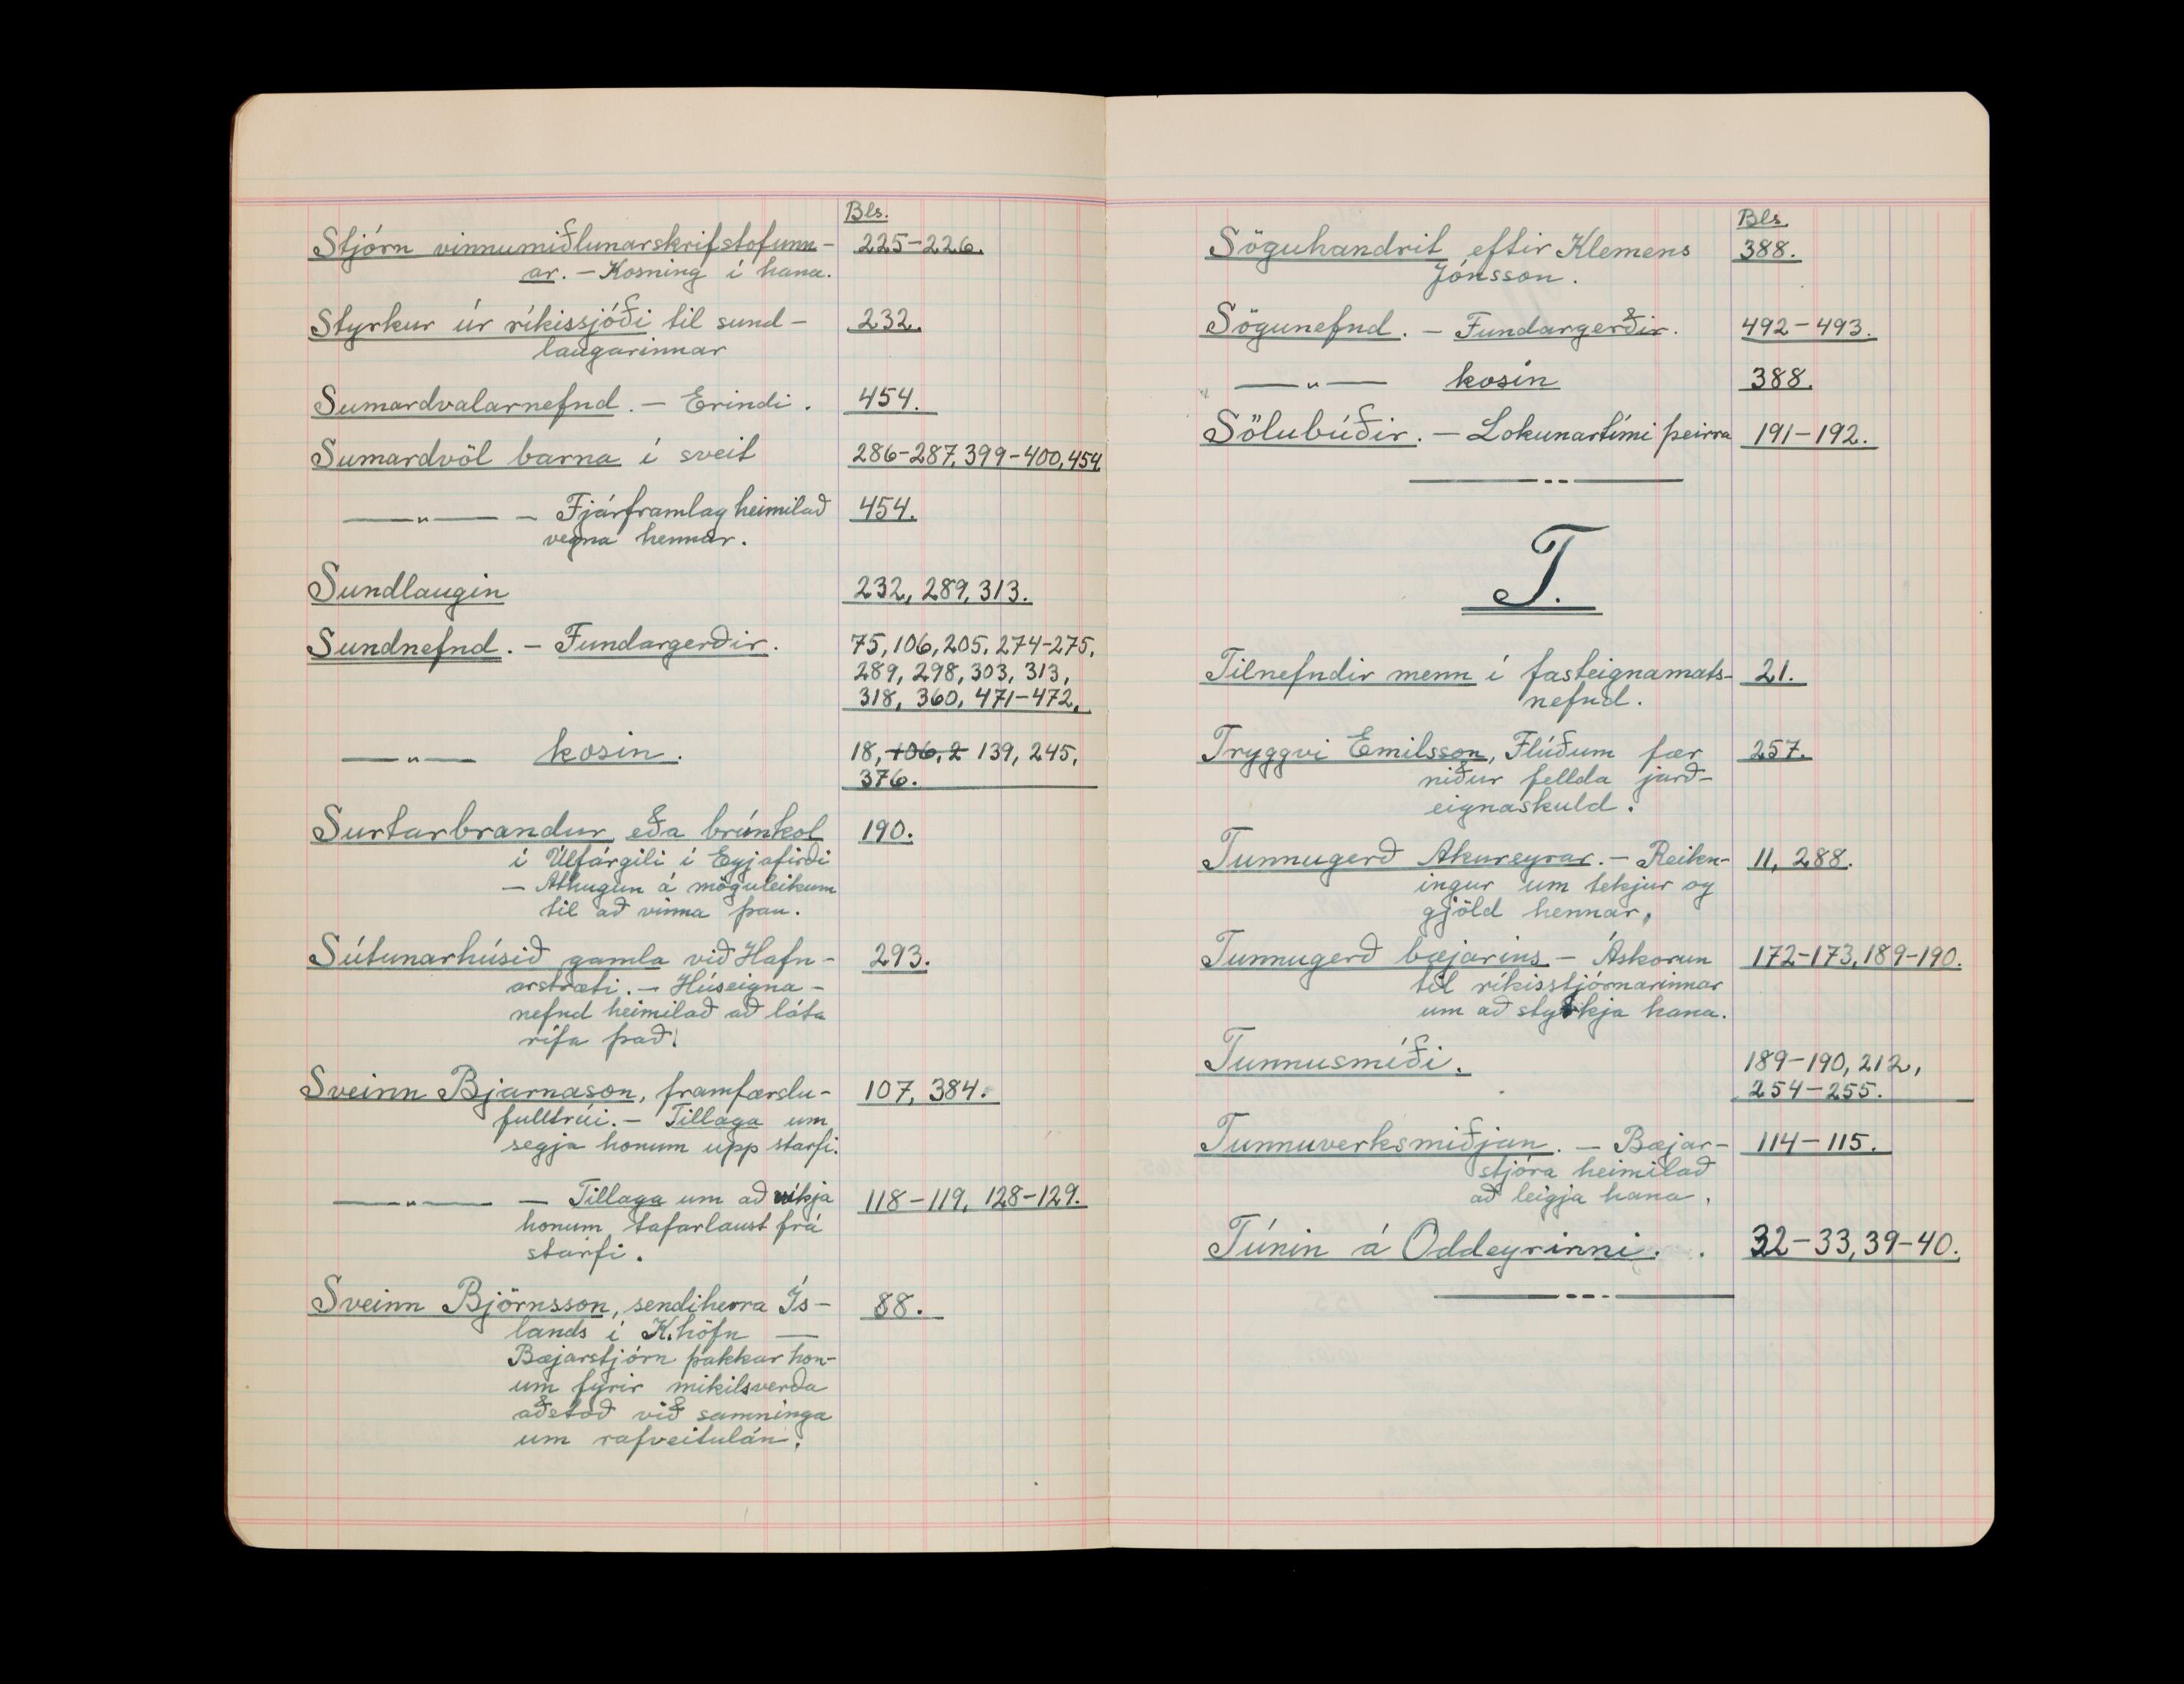 Bls.
Stjórn vinnumiðlunarskrifstofunn- 225-226.
ar. - Kosning í hana.
Styrkur úr ríkissjóði til sund- 232.
laugarinnar
Sumardvalarnefnd. - Erindi. 454.
Sumardvöl barna í sveit 286-287, 399-400, 454.
—„— - Fjárframlag heimilað 454.
vegna hennar.
Sundlaugin 232, 289, 313.
Sundnefnd. - Fundargerðir. 75, 106, 205, 274-275,
289, 298, 303, 313,
318, 360, 471-472.
—„— kosin. 18, 106, 2 139, 245,
376.
Surtarbrandur eða brúnkol 190.
í Úlfárgili í Eyjafirði
- Athugun á möguleikum
til að vinna þau.
Sútunarhúsið gamla við Hafn- 293.
arstræti. - Húseigna-
nefnd heimilað að láta
rífa það.
Sveinn Bjarnason, framfærslu- 107, 384.
fulltrúi. - Tillaga um
segja honum upp starfi.
—„— - Tillaga um að víkja 118-119, 128-129.
honum tafarlaust frá
starfi.
Sveinn Björnsson, sendiherra Ís- 88.
lands í K.höfn —
Bæjarstjórn þakkar hon-
um fyrir mikilsverða
aðstoð við samninga
um rafveitulán.
Bls.
Söguhandrit eftir Klemens 388.
Jónsson.
Sögunefnd. - Fundargerðir. 492-493.
—„— kosin 388.
Sölubúðir. - Lokunartími þeirra 191-192.
T.
Tilnefndir menn í fasteignamats- 21.
nefnd.
Tryggvi Emilsson, Flúðum fær 257.
niður fellda jarð-
eignaskuld.
Tunnugerð Akureyrar. - Reikn- 11, 288.
ingur um tekjur og
gjöld hennar.
Tunnugerð bæjarins - Áskorun 172-173, 189-190.
til ríkisstjórnarinnar
um að styrkja hana.
Tunnusmíði. 189-190, 212,
254-255.
Tunnuverksmiðjan. - Bæjar- 114-115.
stjóra heimilað
að leigja hana.
Túnin á Oddeyrinni. . 32-33, 39-40.